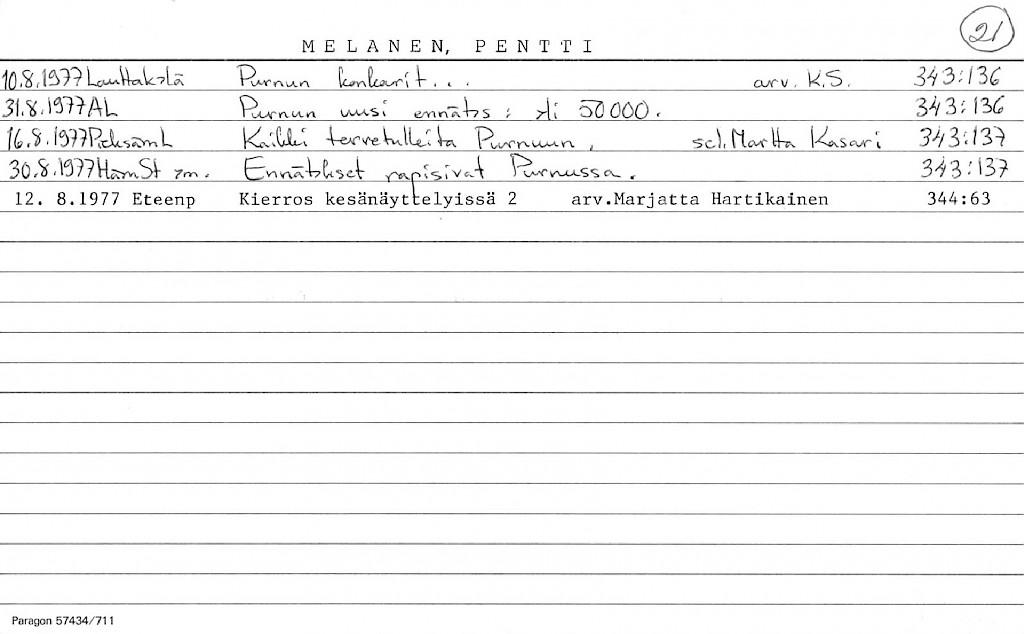 21
MELANEN, PENTTI
10.8.1977 Lauttakylä Purnun konkarit... arv. K.S. 343:136
31.8.1977 AL Purnun uusi ennätys: yli 50000. 343:136
16.8.1977 PieksämL Kaikki tervetulleita Purnuun. sel. Martta Kasari 343:137
30.8.1977 HämSt ym. Ennätykset rapisivat Purnussa. 343:137
12. 8.1977 Eteenp Kierros kesänäyttelyissä 2 arv.Marjatta Hartikainen 344:63
Paragon 57434/711